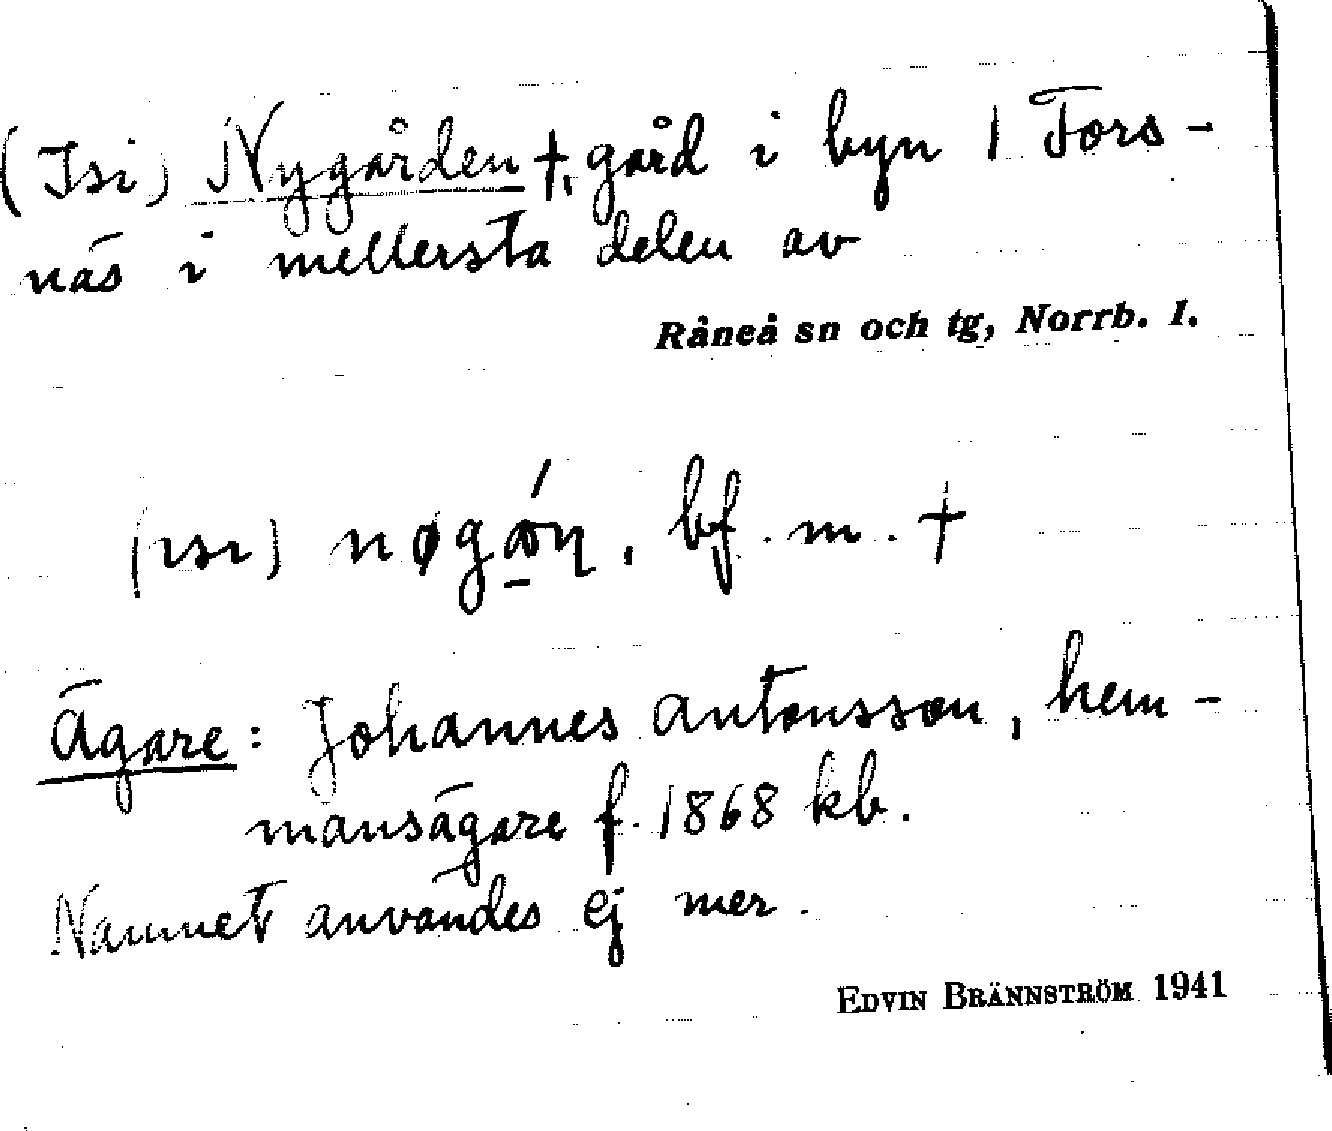 (Isi) Nygården †, gård i byn 1 Fors-
näs i mellersta delen av
Råneå sn och tg, Norrb. l.
(ısı) nøgǿn, bf. m. †
Ägare: Johannes Antonsson, hem-
mansägare f. 1868 kb.
Namnet användes ej mer.
EDVIN BRÄNNSTRÖM 1941